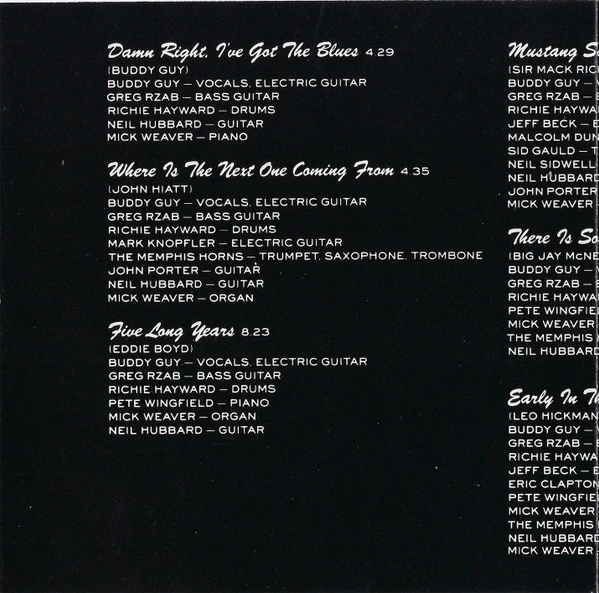 Damn Right, I've Got The Blues 4.29
(BUDDY GUY)
BUDDY GUY – VOCALS, ELECTRIC GUITAR
GREG RZAB – BASS GUITAR
RICHIE HAYWARD – DRUMS
NEIL HUBBARD – GUITAR
MICK WEAVER – PIANO
Where Is The Next One Coming From 4.35
(JOHN HIATT)
BUDDY GUY – VOCALS, ELECTRIC GUITAR
GREG RZAB – BASS GUITAR
RICHIE HAYWARD – DRUMS
MARK KNOPFLER – ELECTRIC GUITAR
THE MEMPHIS HORNS – TRUMPET, SAXOPHONE, TROMBONE
JOHN PORTER – GUITAR
NEIL HUBBARD – GUITAR
MICK WEAVER – ORGAN
Five Long Years 8.23
(EDDIE BOYD)
BUDDY GUY – VOCALS, ELECTRIC GUITAR
GREG RZAB – BASS GUITAR
RICHIE HAYWARD – DRUMS
PETE WINGFIELD – PIANO
MICK WEAVER – ORGAN
NEIL HUBBARD – GUITAR
Mustang
(SIR MACK
BUDDY GUY –
GREG RZAB –
RICHIE
JEFF BECK –
MALCOLM
SID GAULD –
NEIL
NEIL HUBBARD
JOHN PORTER
MICK WEAVER
There Is
(BIG JAY
BUDDY GUY –
GREG RZAB –
RICHIE
PETE
MICK WEAVER
THE MEMPHIS
NEIL HUBBARD
Early In
(LEO HICKMAN
BUDDY GUY –
GREG RZAB –
RICHIE
JEFF BECK –
ERIC CLAPTON
PETE
MICK WEAVER
THE MEMPHIS
NEIL HUBBARD
MICK WEAVER